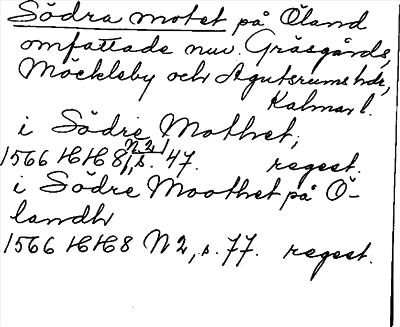 Södra motet på Öland
omfattade nuv. Gräsgårds,
Möckleby och Algutsrums hdr,
Kalmar l.
i Södre Mothet,
1566 HH8, N 2, s. 47. regest.
i Södre Moothet på Ö-
landh
1566 HH8 N 2, s. 77. regest.